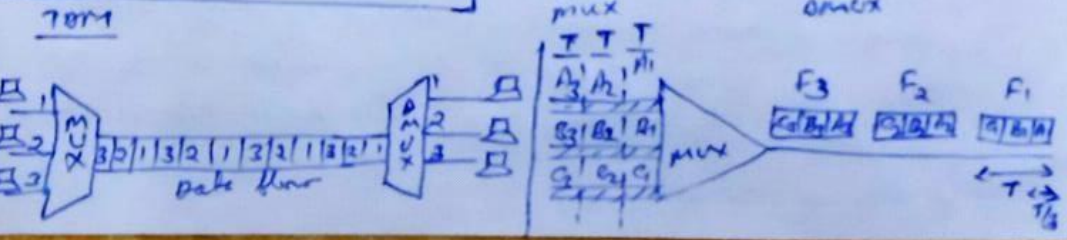 TDM
mux
Dmux
1
2
3
MUX
3 2 1 3 2 1 3 2 1 3 2 1
Data flow
DMUX
1
2
3
T T T
A3 A2 A1
B3 B2 B1
C3 C2 C1
MUX
F3 F2 F1
C3 B3 A3 C2 B2 A2 C1 B1 A1
T
T/3